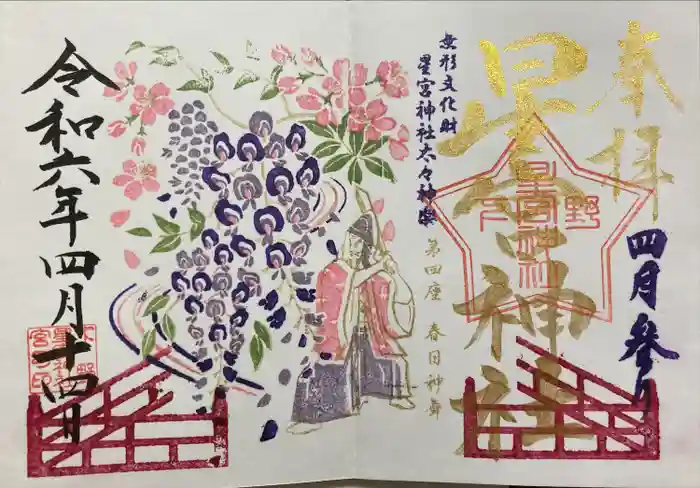 奉拝
星宮神社
四月参り
下野
星宮神社
無形文化財
星宮神社太々神楽
第四座 春日神舞
令和六年四月十四日